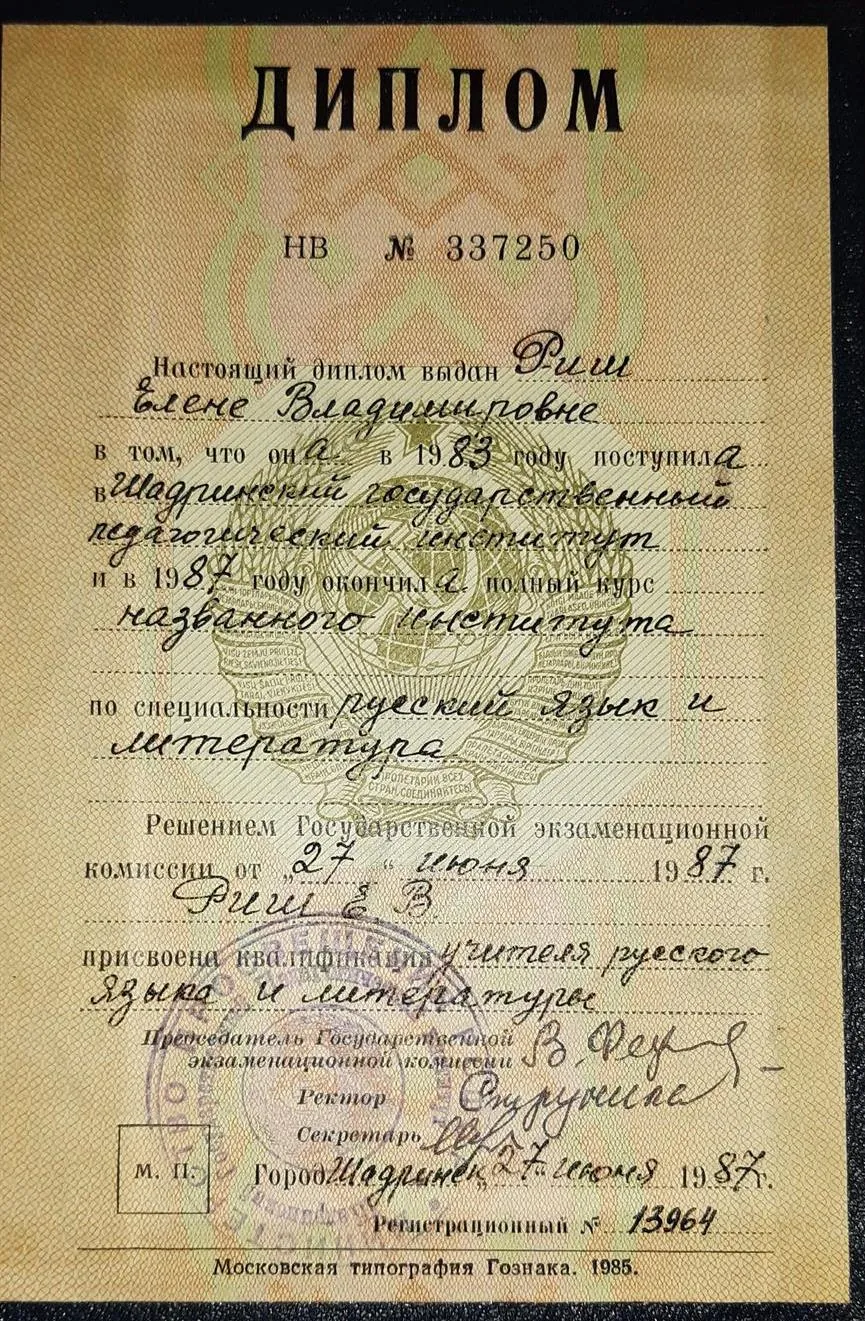 ДИПЛОМ
НВ № 337250
Настоящий диплом выдан Риш
Елене Владимировне
в том, что она в 1983 году поступила
в Шадринский государственный
педагогический институт
и в 1987 году окончила полный курс
названного института
по специальности русский язык и
литература
ПРОЛЕТАРИИ ВСЕХ
СТРАН, СОЕДИНЯЙТЕСЬ!
Решением Государственной экзаменационной
комиссии от „27“ июня 1987 г.
Риш Е. В.
присвоена квалификация учителя русского
языка и литературы
Председатель Государственной
экзаменационной комиссии
Ректор
Секретарь
М. П.
Город Шадринск „27“ июня 1987 г.
Регистрационный № 13964
Московская типография Гознака. 1985.